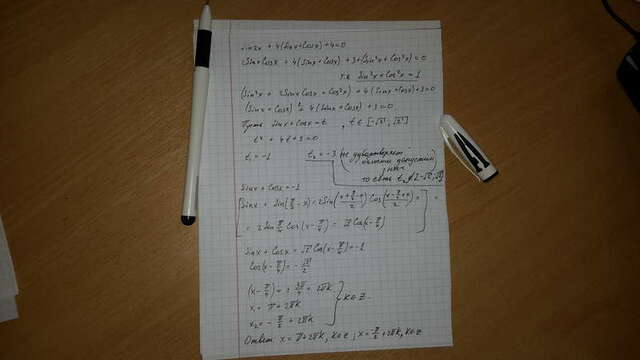 sin2x + 4(sinx+cosx)+4=0
2sinx cosx + 4(sinx+cosx)+3+(sin²x+cos²x)=0
т.к sin²x+cos²x=1
(sin²x + 2sinx cosx + cos²x) + 4(sinx+cosx)+3=0
(sinx+cosx)² + 4(sinx+cosx)+3=0
Пусть sinx+cosx=t, t∈[-√2; √2]
t²+4t+3=0
t₁=-1 t₂=-3 (не удовлетворяет
области допустим
знач
то есть t₂∉[-√2;√2])
sinx+cosx=-1
[sinx + sin(π/2-x)=2sin((x+π/2-x)/2)cos((x-π/2+x)/2)=
=2sin π/4 cos(x-π/4)=√2 cos(x-π/4)]
sinx+cosx=√2 cos(x-π/4)=-1
cos(x-π/4)=-√2/2
(x-π/4)=± 3π/4+2πk
x₁=π+2πk
x₂=-π/2+2πk } k∈Z
Ответ x=π+2πk, k∈Z; x=-π/2+2πk, k∈Z